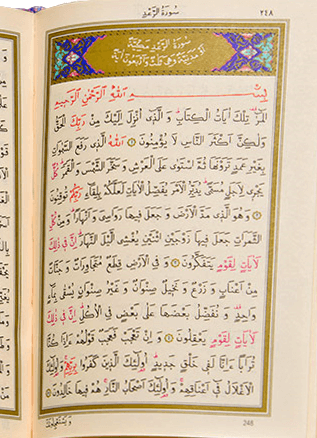 ٢٤٨
سُورَةُ الرَّعْدِ
سُورَةُ الرَّعْدِ مَكِّيَّةٌ
بِسْمِ اللّٰهِ الرَّحْمٰنِ الرَّحِيمِ
الٓمٓرٰ تِلْكَ اٰيَاتُ الْكِتَابِ وَالَّذٖٓى اُنْزِلَ اِلَيْكَ مِنْ رَبِّكَ الْحَقُّ
وَلٰكِنَّ اَكْثَرَ النَّاسِ لَا يُؤْمِنُونَ ١ اَللّٰهُ الَّذٖى رَفَعَ السَّمٰوَاتِ
بِغَيْرِ عَمَدٍ تَرَوْنَهَا ثُمَّ اسْتَوٰى عَلَى الْعَرْشِ وَسَخَّرَ الشَّمْسَ وَالْقَمَرَ كُلٌّ
يَجْرٖى لِاَجَلٍ مُسَمًّى يُدَبِّرُ الْاَمْرَ يُفَصِّلُ الْاٰيَاتِ لَعَلَّكُمْ بِلِقَٓاءِ رَبِّكُمْ تُوقِنُونَ
٢ وَهُوَ الَّذٖى مَدَّ الْاَرْضَ وَجَعَلَ فٖيهَا رَوَاسِىَ وَاَنْهَارًا وَمِنْ كُلِّ
الثَّمَرَاتِ جَعَلَ فٖيهَا زَوْجَيْنِ اثْنَيْنِ يُغْشِى الَّيْلَ النَّهَارَ اِنَّ فٖى ذٰلِكَ
لَاٰيَاتٍ لِقَوْمٍ يَتَفَكَّرُونَ ٣ وَفِى الْاَرْضِ قِطَعٌ مُتَجَاوِرَاتٌ وَجَنَّاتٌ
مِنْ اَعْنَابٍ وَزَرْعٌ وَنَخٖيلٌ صِنْوَانٌ وَغَيْرُ صِنْوَانٍ يُسْقٰى بِمَٓاءٍ
وَاحِدٍ وَنُفَضِّلُ بَعْضَهَا عَلٰى بَعْضٍ فِى الْاُكُلِ اِنَّ فٖى ذٰلِكَ
لَاٰيَاتٍ لِقَوْمٍ يَعْقِلُونَ ٤ وَاِنْ تَعْجَبْ فَعَجَبٌ قَوْلُهُمْ ءَاِذَا كُنَّا
تُرَابًا ءَاِنَّا لَفٖى خَلْقٍ جَدٖيدٍ اُو۬لٰٓئِكَ الَّذٖينَ كَفَرُوا بِرَبِّهِمْ وَاُو۬لٰٓئِكَ
الْاَغْلَالُ فٖٓى اَعْنَاقِهِمْ وَاُو۬لٰٓئِكَ اَصْحَابُ النَّارِ هُمْ فٖيهَا خَالِدُونَ ٥
وَيَسْتَعْجِلُونَكَ
248